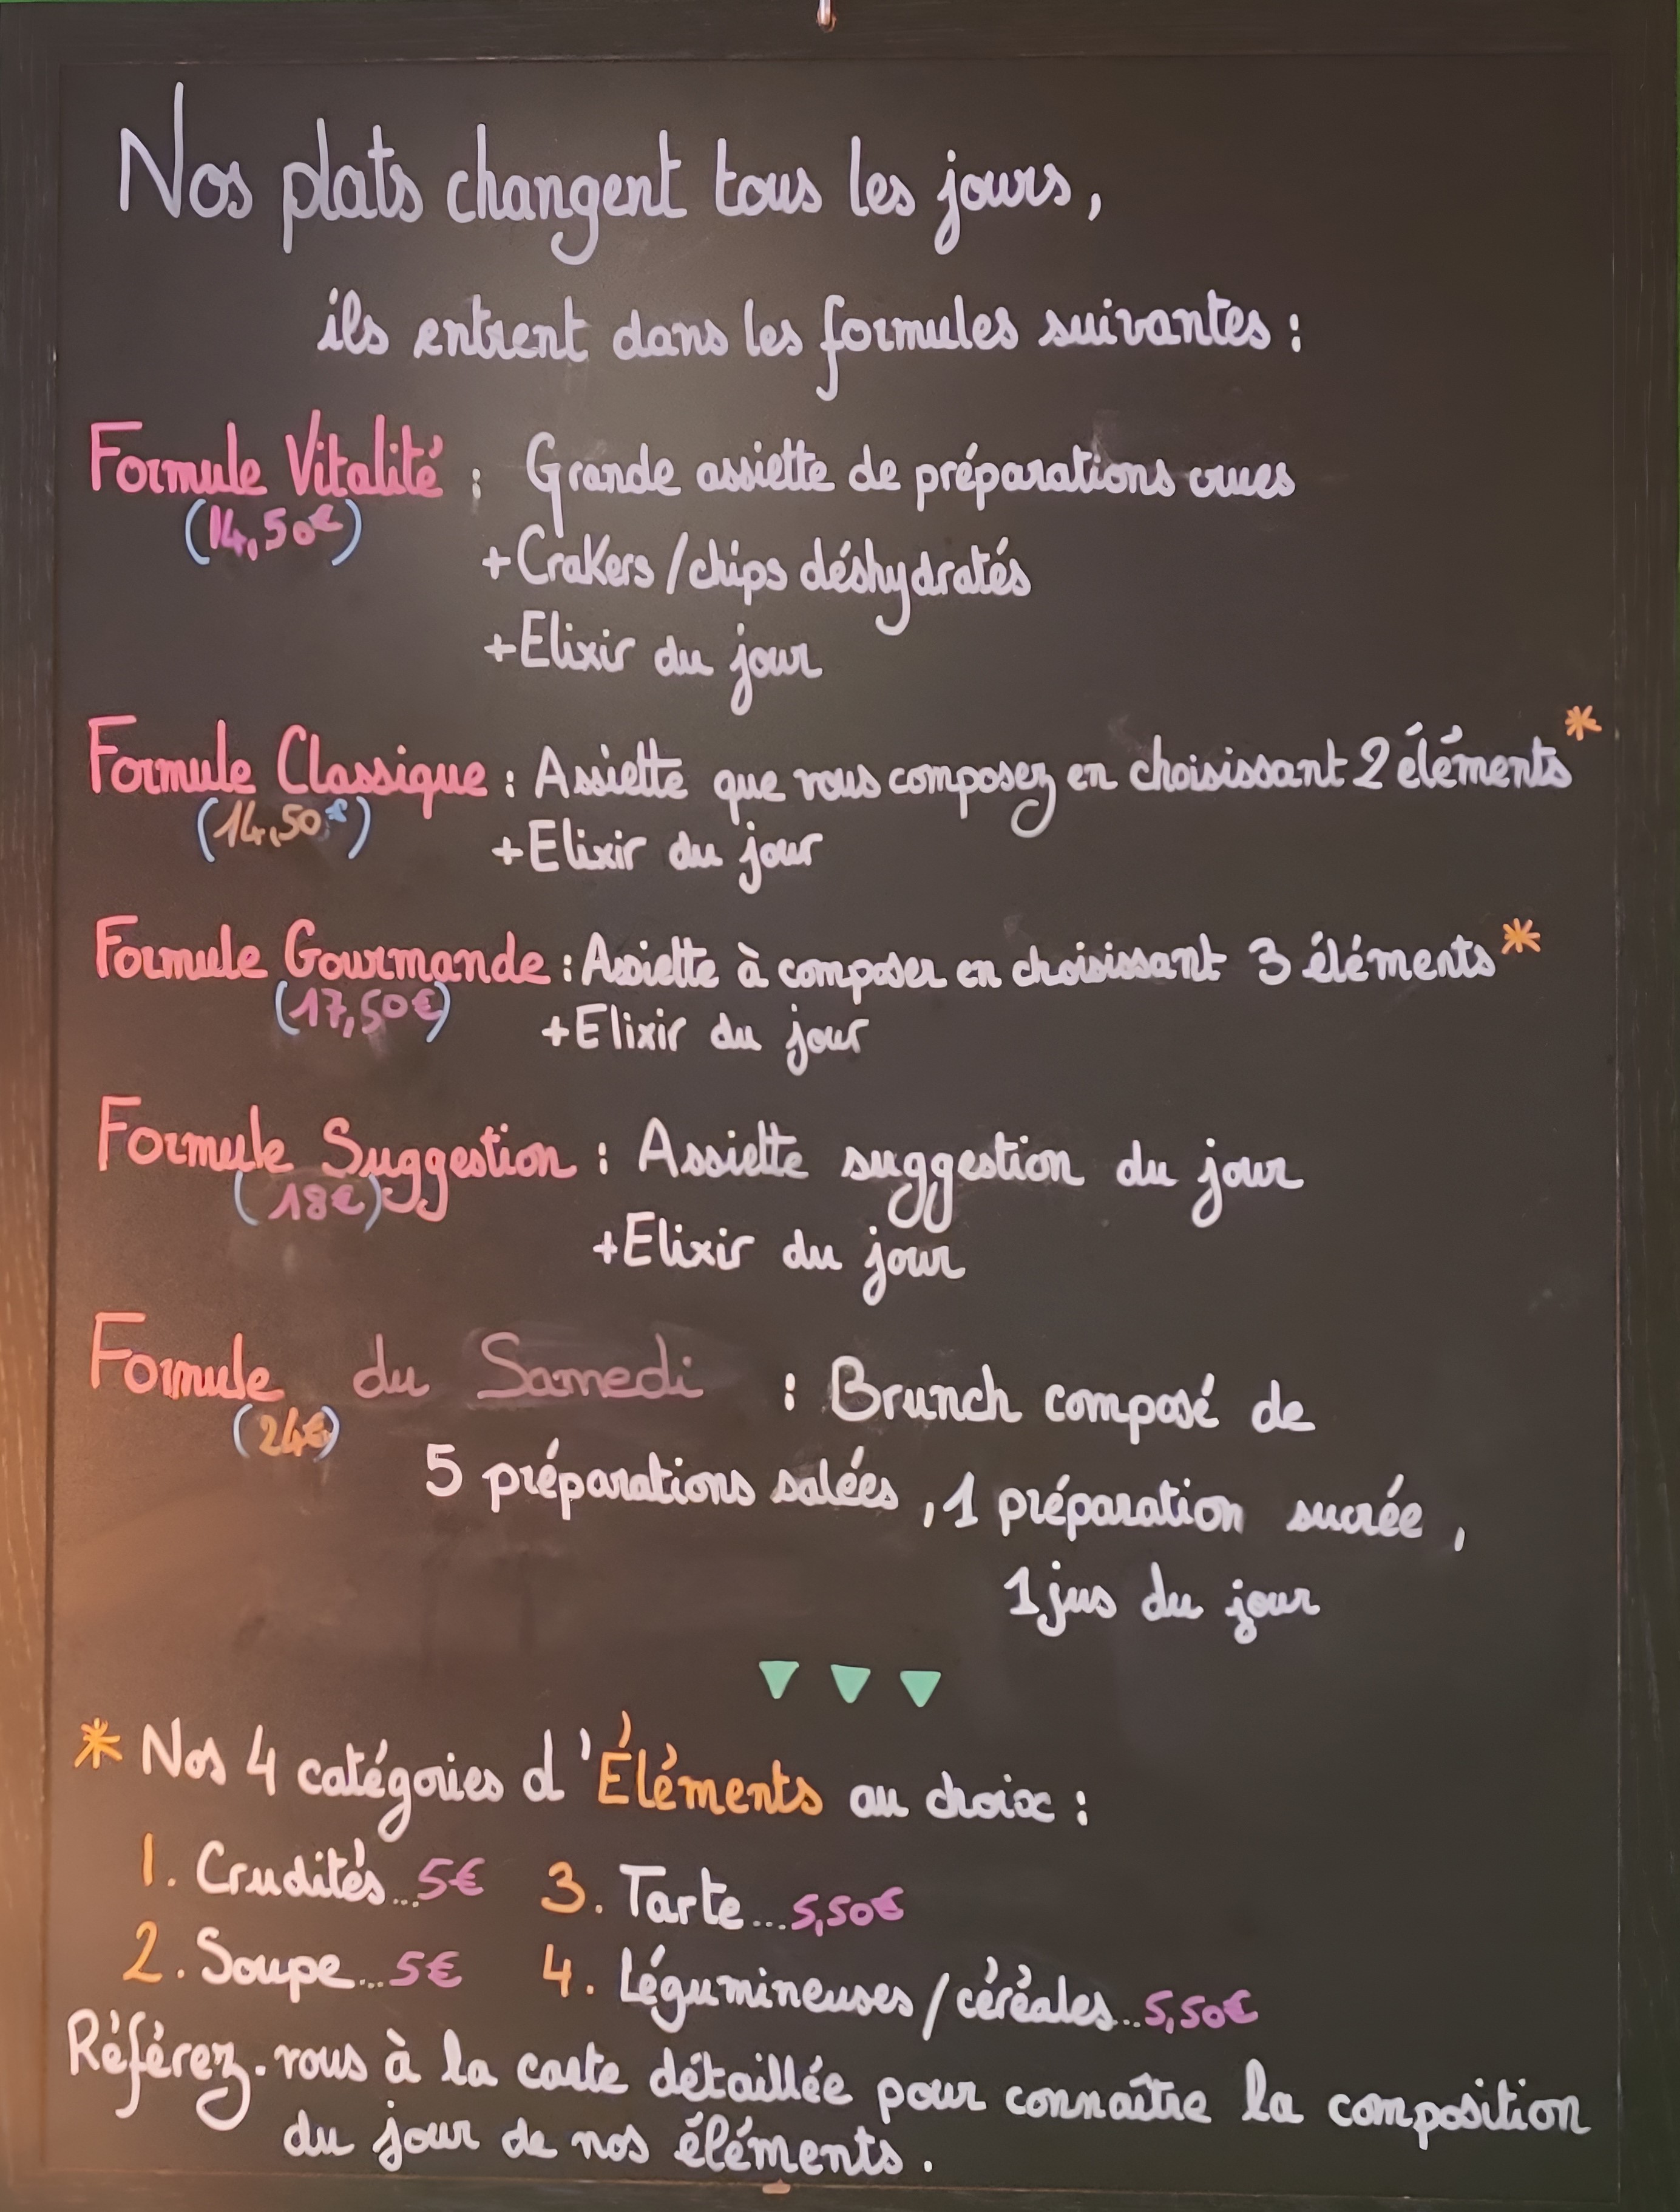 Nos plats changent tous les jours,
ils entrent dans les formules suivantes :
Formule Vitalité : Grande assiette de préparations crues
(14,50€)
+Crakers /chips déshydratés
+Elixir du jour
Formule Classique : Assiette que vous composez en choisissant 2 éléments*
(14,50€)
+Elixir du jour
Formule Gourmande : Assiette à composer en choisissant 3 éléments*
(17,50€)
+Elixir du jour
Formule Suggestion : Assiette suggestion du jour
(18€)
+Elixir du jour
Formule du Samedi : Brunch composé de
(24€)
5 préparations salées , 1 préparation sucrée ,
1 jus du jour
* Nos 4 catégories d'Éléments au choix :
1. Crudités...5€ 3. Tarte...5,50€
2. Soupe...5€ 4. Légumineuses/céréales...5,50€
Référez-vous à la carte détaillée pour connaître la composition
du jour de nos éléments.